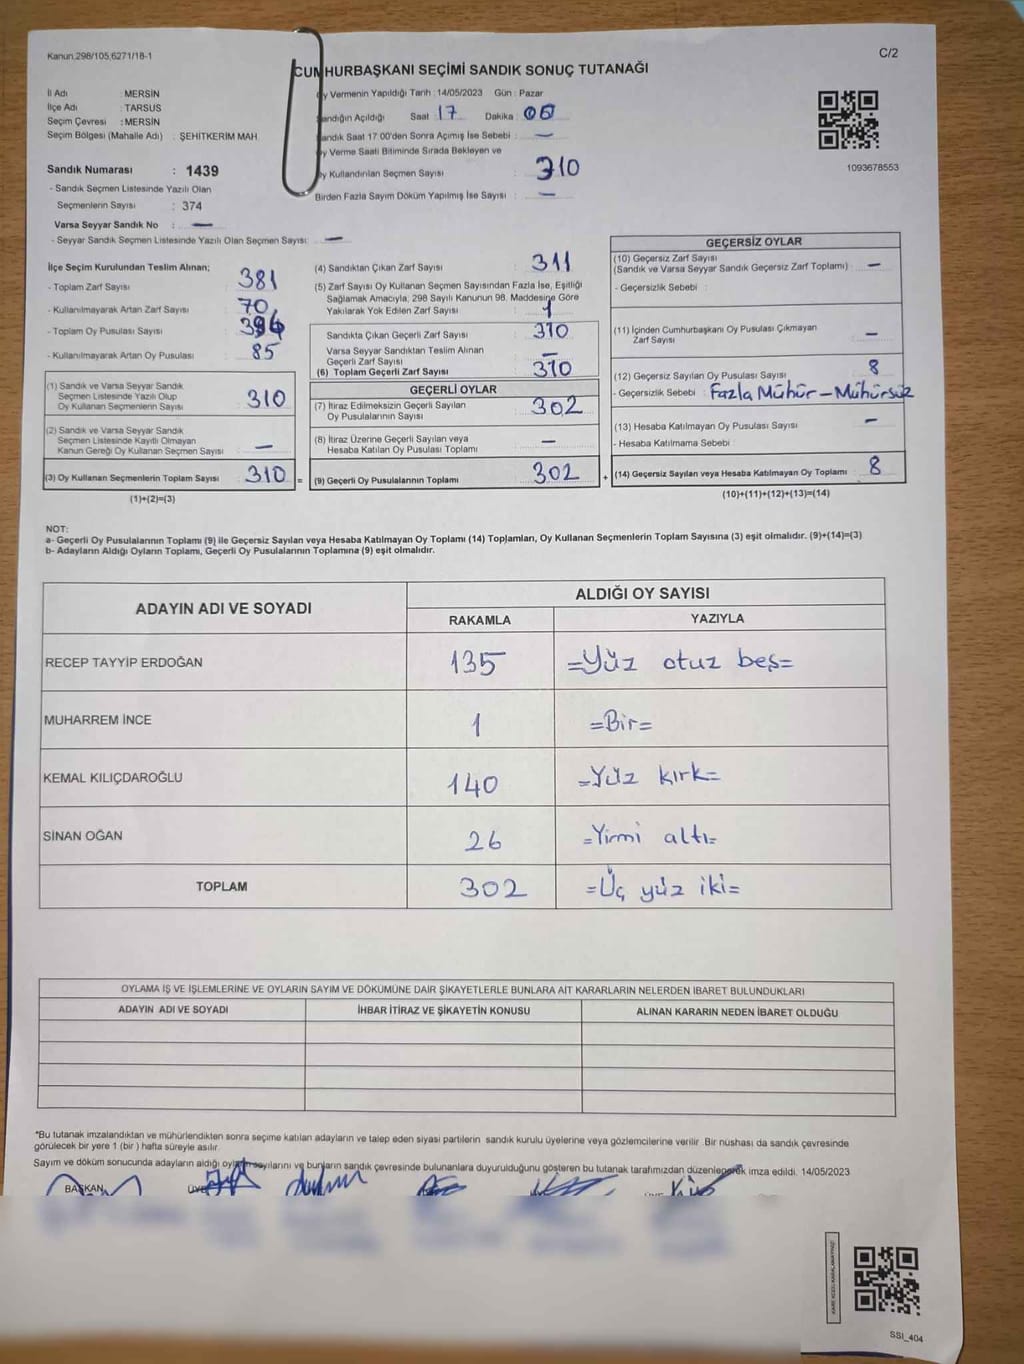 Kanun.298/105,6271/18-1
C/2
CUMHURBAŞKANI SEÇİMİ SANDIK SONUÇ TUTANAĞI
İl Adı : MERSİN
İlçe Adı : TARSUS
Seçim Çevresi : MERSİN
Seçim Bölgesi (Mahalle Adı) : ŞEHİTKERİM MAH.
Sandık Numarası : 1439
- Sandık Seçmen Listesinde Yazılı Olan
Seçmenlerin Sayısı : 374
Varsa Seyyar Sandık No : —
- Seyyar Sandık Seçmen Listesinde Yazılı Olan Seçmen Sayısı: —
Oy Vermenin Yapıldığı Tarih : 14/05/2023 Gün : Pazar
Sandığın Açıldığı Saat 17 Dakika 06
Sandık Saat 17.00'den Sonra Açımış İse Sebebi : —
Oy Verme Saati Bitiminde Sırada Bekleyen ve
Oy Kullandırılan Seçmen Sayısı : 310
Birden Fazla Sayım Döküm Yapılmış İse Sayısı : —
1093678553
İlçe Seçim Kurulundan Teslim Alınan;
- Toplam Zarf Sayısı : 381
- Kullanılmayarak Artan Zarf Sayısı : 70
- Toplam Oy Pusulası Sayısı : 394
- Kullanılmayarak Artan Oy Pusulası : 85
(1) Sandık ve Varsa Seyyar Sandık
Seçmen Listesinde Yazılı Olup
Oy Kullanan Seçmenlerin Sayısı : 310
(2) Sandık ve Varsa Seyyar Sandık
Seçmen Listesinde Kayıtlı Olmayan
Kanun Gereği Oy Kullanan Seçmen Sayısı : —
(3) Oy Kullanan Seçmenlerin Toplam Sayısı : 310 =
(1)+(2)=(3)
(4) Sandıktan Çıkan Zarf Sayısı : 311
(5) Zarf Sayısı Oy Kullanan Seçmen Sayısından Fazla İse, Eşitliği
Sağlamak Amacıyla, 298 Sayılı Kanunun 98. Maddesine Göre
Yakılarak Yok Edilen Zarf Sayısı : 1
Sandıkta Çıkan Geçerli Zarf Sayısı : 310
Varsa Seyyar Sandıktan Teslim Alınan
Geçerli Zarf Sayısı : —
(6) Toplam Geçerli Zarf Sayısı : 310
GEÇERLİ OYLAR
(7) İtiraz Edilmeksizin Geçerli Sayılan
Oy Pusulalarının Sayısı : 302
(8) İtiraz Üzerine Geçerli Sayılan veya
Hesaba Katılan Oy Pusulası Toplamı : —
(9) Geçerli Oy Pusulalarının Toplamı : 302 +
GEÇERSİZ OYLAR
(10) Geçersiz Zarf Sayısı
(Sandık ve Varsa Seyyar Sandık Geçersiz Zarf Toplamı) : —
- Geçersizlik Sebebi :
(11) İçinden Cumhurbaşkanı Oy Pusulası Çıkmayan
Zarf Sayısı : —
(12) Geçersiz Sayılan Oy Pusulası Sayısı : 8
- Geçersizlik Sebebi : Fazla Mühür – Mühürsüz
(13) Hesaba Katılmayan Oy Pusulası Sayısı : —
- Hesaba Katılmama Sebebi :
(14) Geçersiz Sayılan veya Hesaba Katılmayan Oy Toplamı : 8
(10)+(11)+(12)+(13)=(14)
NOT:
a- Geçerli Oy Pusulalarının Toplamı (9) ile Geçersiz Sayılan veya Hesaba Katılmayan Oy Toplamı (14) Toplamları, Oy Kullanan Seçmenlerin Toplam Sayısına (3) eşit olmalıdır. (9)+(14)=(3)
b- Adayların Aldığı Oyların Toplamı, Geçerli Oy Pusulalarının Toplamına (9) eşit olmalıdır.
ADAYIN ADI VE SOYADI ALDIĞI OY SAYISI
RAKAMLA YAZIYLA
RECEP TAYYİP ERDOĞAN 135 =Yüz otuz beş=
MUHARREM İNCE 1 =Bir=
KEMAL KILIÇDAROĞLU 140 =Yüz kırk=
SİNAN OĞAN 26 =Yirmi altı=
TOPLAM 302 =Üç yüz iki=
OYLAMA İŞ VE İŞLEMLERİNE VE OYLARIN SAYIM VE DÖKÜMÜNE DAİR ŞİKAYETLERLE BUNLARA AİT KARARLARIN NELERDEN İBARET BULUNDUKLARI
ADAYIN ADI VE SOYADI İHBAR İTİRAZ VE ŞİKAYETİN KONUSU ALINAN KARARIN NEDEN İBARET OLDUĞU
*Bu tutanak imzalandıktan ve mühürlendikten sonra seçime katılan adayların ve talep eden siyasi partilerin sandık kurulu üyelerine veya gözlemcilerine verilir. Bir nüshası da sandık çevresinde
görülecek bir yere 1 (bir ) hafta süreyle asılır.
Sayım ve döküm sonucunda adayların aldığı oyların sayılarını ve bunların sandık çevresinde bulunanlara duyurulduğunu gösteren bu tutanak tarafımızdan düzenlenerek imza edildi. 14/05/2023
BAŞKAN ÜYE
SSI_404